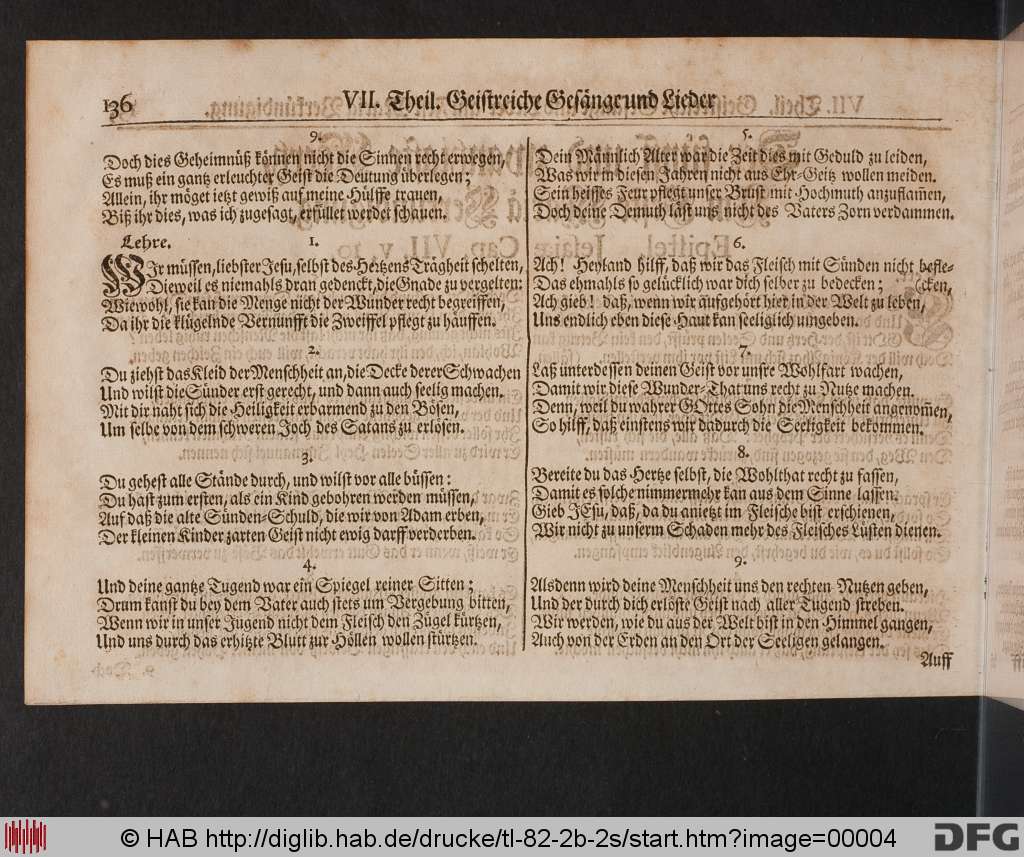 136
VII. Theil. Geistreiche Gesänge und Lieder
9.
Doch dies Geheimnüß können nicht die Sinnen recht erwegen,
Es muß ein gantz erleuchter Geist die Deutung überlegen;
Allein, ihr möget ietzt gewiß auf meine Hülffe trauen,
Biß ihr dies, was ich zugesagt, erfüllet werdet schauen.
Lehre. 1.
WIr müssen, liebster Jesu, selbst des Hertzens Trägheit schelten,
Dieweil es niemahls dran gedenckt, die Gnade zu vergelten:
Wiewohl, sie kan die Menge nicht der Wunder recht begreiffen,
Da ihr die klügelnde Vernunfft die Zweiffel pflegt zu häuffen.
2.
Du ziehst das Kleid der Menschheit an, die Decke derer Schwachen
Und wilst die Sünder erst gerecht, und dann auch seelig machen.
Mit dir naht sich die Heiligkeit erbarmend zu den Bösen,
Um selbe von dem schweren Joch des Satans zu erlösen.
3.
Du gehest alle Stände durch, und wilst vor alle büssen:
Du hast zum ersten, als ein Kind gebohren werden müssen,
Auf daß die alte Sünden-Schuld, die wir von Adam erben,
Der kleinen Kinder zarten Geist nicht ewig darff verderben.
4.
Und deine gantze Tugend war ein Spiegel reiner Sitten;
Drum kanst du bey dem Vater auch stets um Vergebung bitten,
Wenn wir in unser Jugend nicht dem Fleisch den Zügel kürtzen,
Und uns durch das erhitzte Blutt zur Höllen wollen stürtzen.
5.
Dein Männlich Alter war die Zeit dies mit Geduld zu leiden,
Was wir in diesen Jahren nicht aus Ehr-Geitz wollen meiden.
Sein heisses Feur pflegt unser Brust mit Hochmuth anzuflam̃en,
Doch deine Demuth läst uns nicht des Vaters Zorn verdammen.
6.
Ach! Heyland hilff, daß wir das Fleisch mit Sünden nicht befle-
Das ehmahls so gelücklich war dich selber zu bedecken; (cken,
Ach gieb! daß, wenn wir aufgehört hier in der Welt zu leben,
Uns endlich eben diese Haut kan seeliglich umgeben.
7.
Laß unterdessen deinen Geist vor unsre Wohlfart wachen,
Damit wir diese Wunder-That uns recht zu Nutze machen.
Denn, weil du wahrer GOttes Sohn die Menschheit angenom̃en,
So hilff, daß einstens wir dadurch die Seeligkeit bekommen.
8.
Bereite du das Hertze selbst, die Wohlthat recht zu fassen,
Damit es solche nimmermehr kan aus dem Sinne lassen.
Gieb JEsu, daß, da du anietzt im Fleische bist erschienen,
Wir nicht zu unserm Schaden mehr des Fleisches Lüsten dienen.
9.
Alsdenn wird deine Menschheit uns den rechten Nutzen geben,
Und der durch dich erlöste Geist nach aller Tugend streben.
Wir werden, wie du aus der Welt bist in den Himmel gangen,
Auch von der Erden an den Ort der Seeligen gelangen.
Auff
© HAB http://diglib.hab.de/drucke/tl-82-2b-2s/start.htm?image=00004
DFG